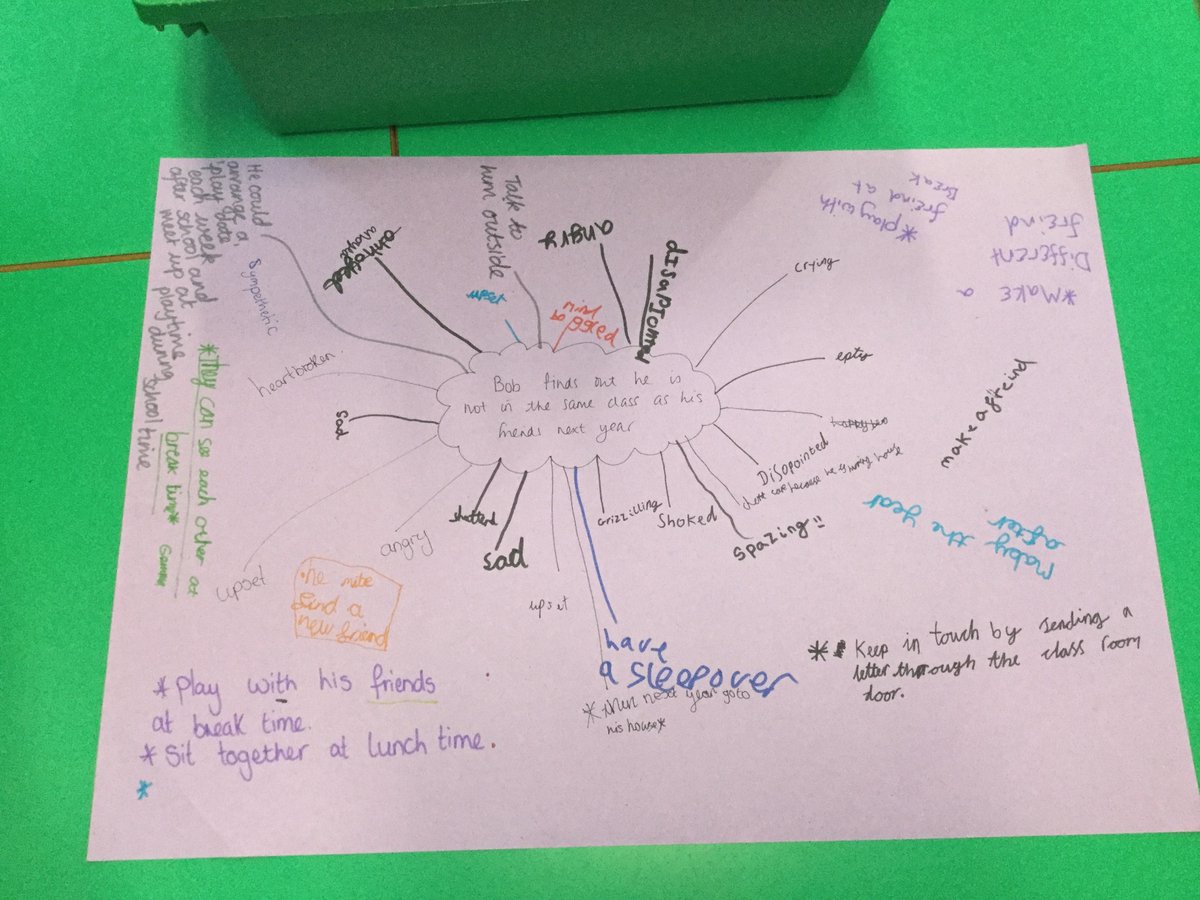 Bob finds out he is
not in the same class as his
friends next year
He could
arrange a
play date
each week
after school and
meet up at
playtime
during
school time
sympethetic
heartbroken
sad
*They can see each other at
break time*
upset
angry
shatterd
sad
upset
Talk to
him outside
upset
angry
crying
epty
Disopointed
Shoked
spazing!!
grizzilling
have
a sleepover
*then next year go to
his house*
•he mite
find a
new friend
*play with his friends
at break time.
*Sit together at lunch time.
*
*play with
freind at
Break
*Make
a
Different
freind
make a freind
Maby the year
after
** Keep in touch by sending a
letter through the class room
door.